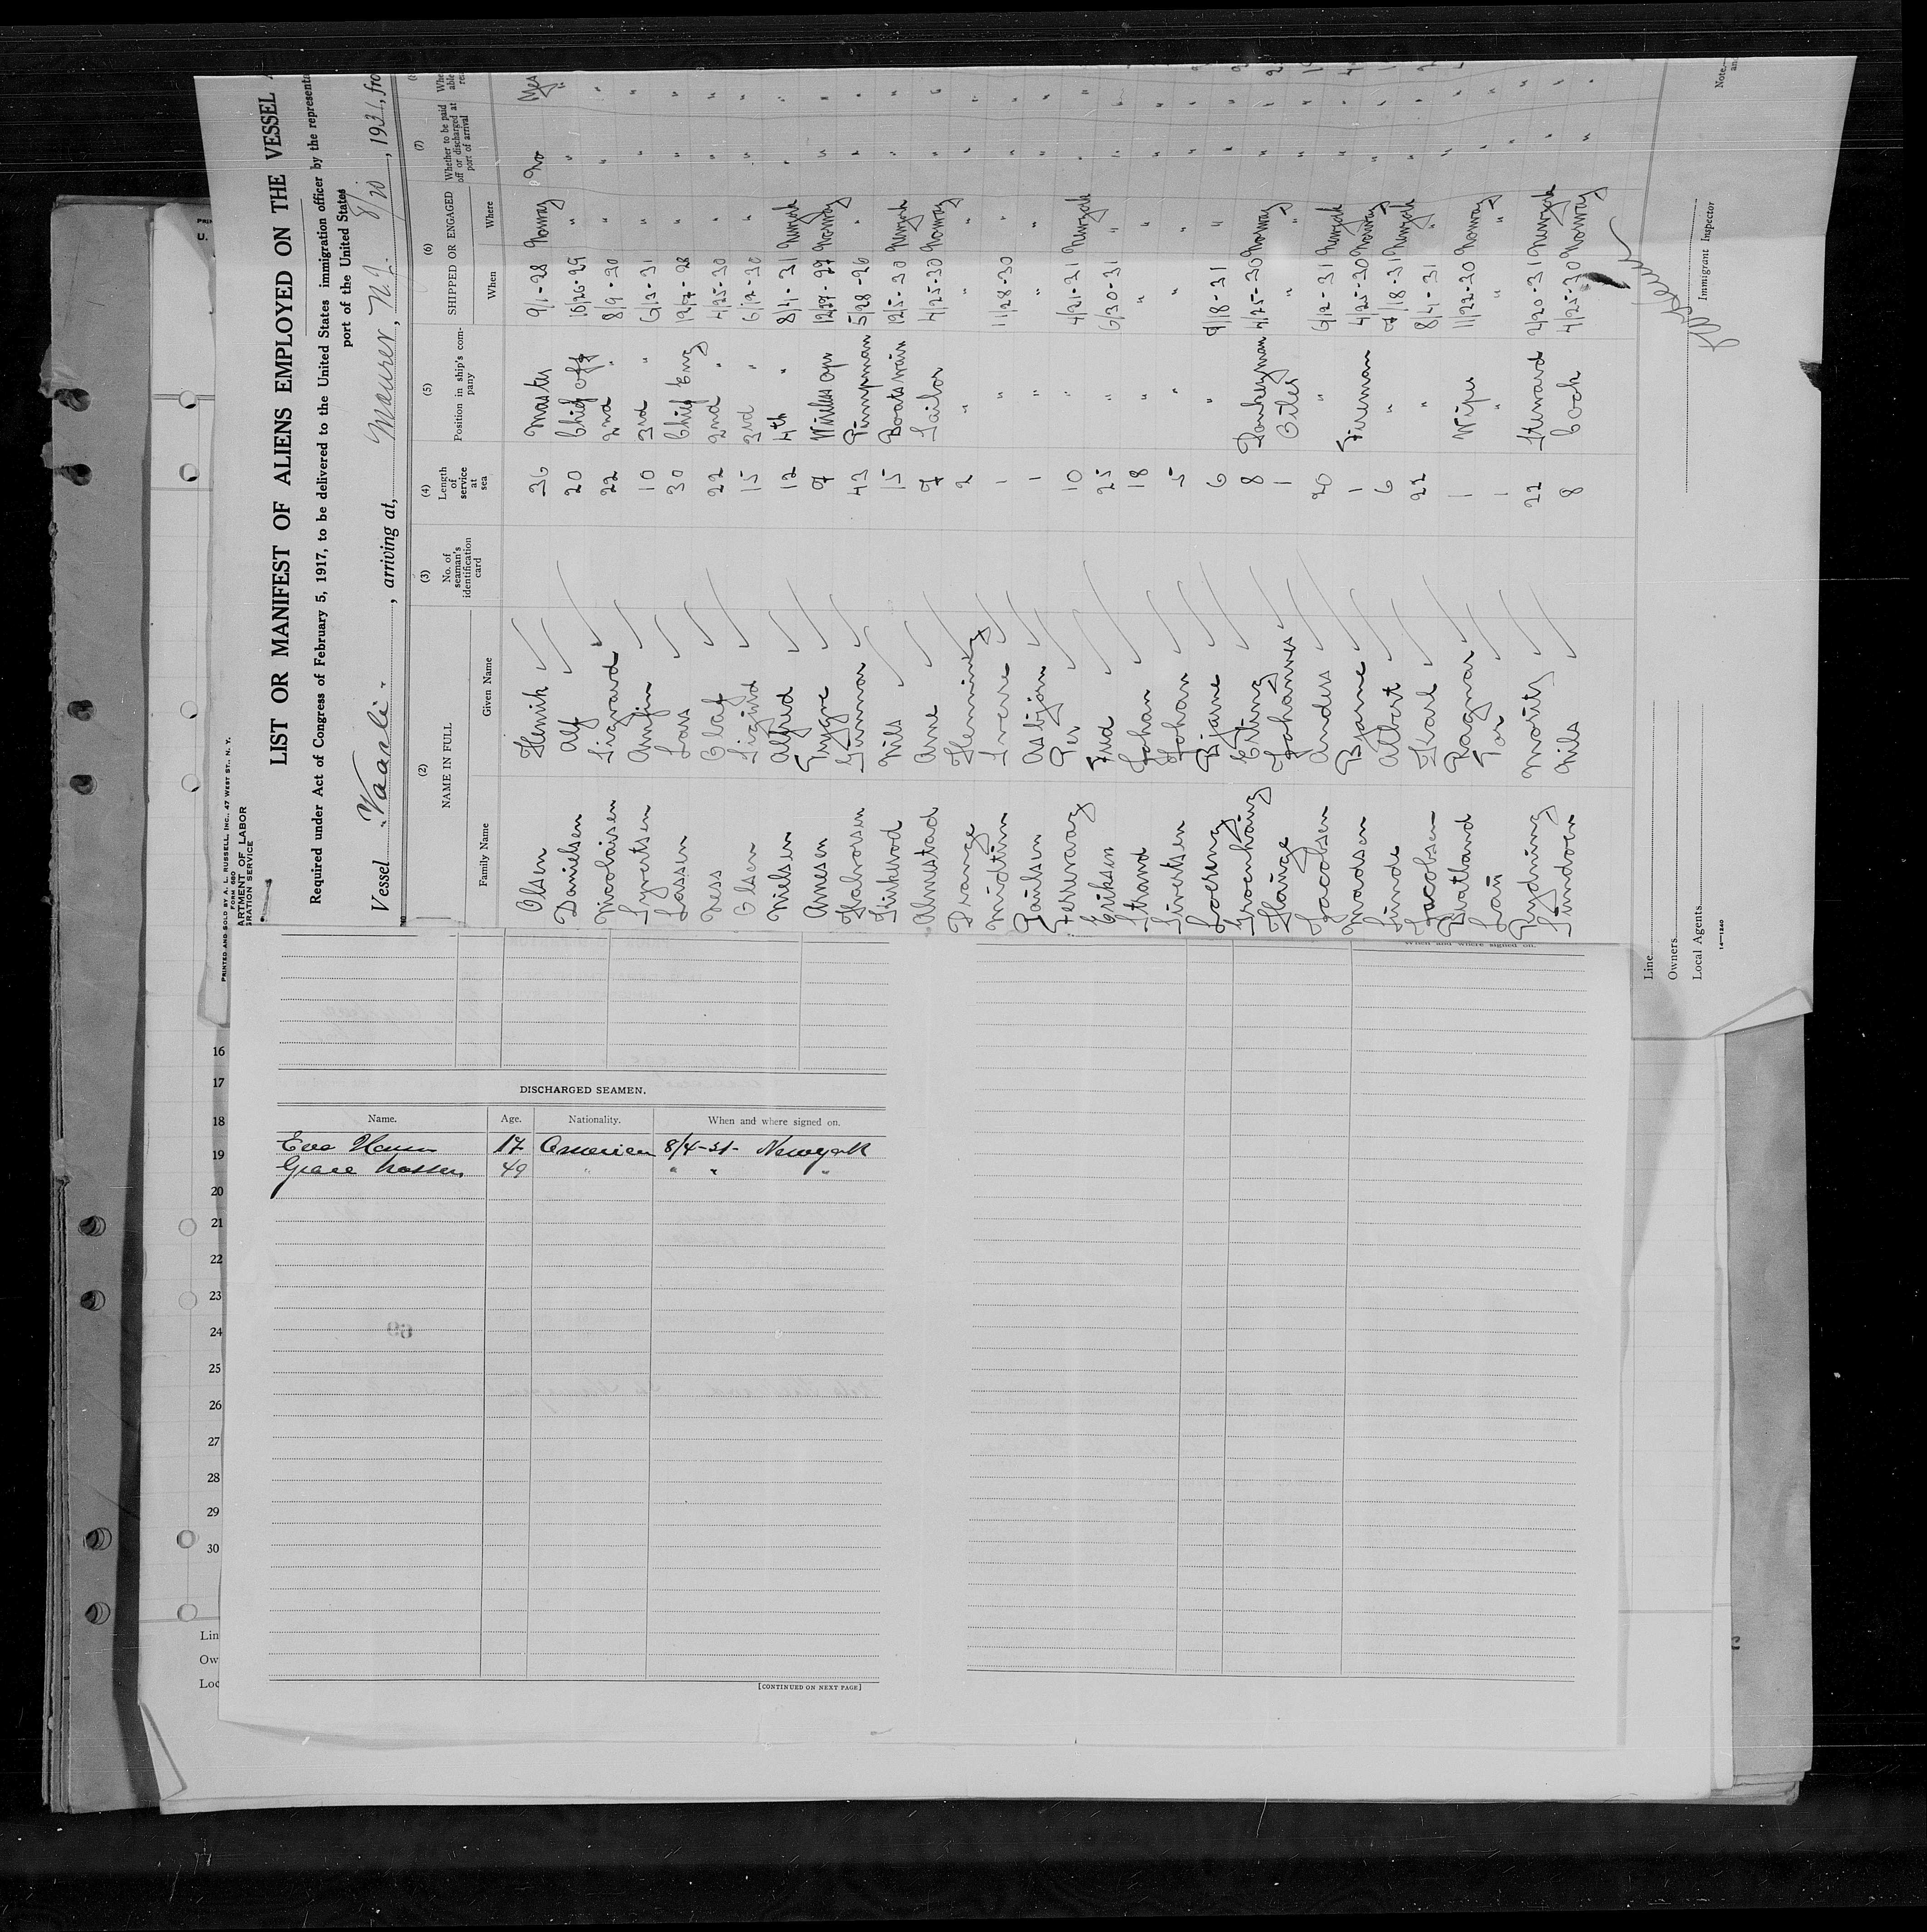 PRINTED AND SOLD BY A. L. RUSSELL, INC., 47 WEST ST., N. Y.
FORM 680
ARTMENT OF LABOR
GRATION SERVICE
LIST OR MANIFEST OF ALIENS EMPLOYED ON THE VESSEL
Required under Act of Congress of February 5, 1917, to be delivered to the United States immigration officer by the representa
port of the United States
Vessel Vaarli, arriving at, Maurer, N.J. 8/20, 1931, fro
(2) (3) (4) (5) (6) (7)
NAME IN FULL
Family Name Given Name
No. of seaman's identification card
Length of service at sea
Position in ship's company
SHIPPED OR ENGAGED
When Where
Whether to be paid off or discharged at port of arrival
Olsen Henrik 36 Master 9/1-28 Norway No Yes
Danielsen Alf 20 Chief off 10/26-29 " " "
Nicolaisen Sigvard 22 2nd " 8/9-30 " " "
Syvertsen Arnfin 10 3rd " 6/13-31 " " "
Lassen Lars 30 Chief Eng 12/7-28 " " "
Ness Olaf 22 2nd " 4/25-30 " " "
Olsen Sigurd 15 3rd " 6/12-30 " " "
Nielsen Alfred 12 4th " 8/4-31 Newyork " "
Arnesen Trygve 7 Wireless opr 12/27-27 Norway " "
Halvorsen Gunnar 43 Pumpman 5/28-26 " " "
Kirkerod Nils 15 Boatswain 12/5-30 Newyork " "
Almestad Arne 7 Sailor 4/25-30 Norway " "
Drange Henning 2 " " " " "
Midttun Sverre 1 " 11/28-30 " " "
Paulsen Asbjörn 1 " " " " "
Ferrevaag Per 10 " 4/21-31 Newyork " "
Eriksen 25 " 6/30-31 " " "
Strand Johan 18 " " " " "
Sivertsen Johan 5 " " " " "
Bjarne 6 " 7/18-31 " " "
Erling 8 Donkeyman 4/25-30 Norway " "
Hauge Johannes 1 Oiler " " " "
Jacobsen Anders 20 " 6/12-31 Newyork " "
Madsen Bjarne 1 Fireman 4/25-30 Norway " "
Lunde Albert 6 " 7/18-31 Newyork " "
Jacobsen Karl 22 " 8/4-31 " " "
Ragnar 1 Wiper 11/22-30 Norway " "
Tor 1 " " " " "
Rydning Moritz 22 Steward 2/20-31 Newyork " "
Nils 8 Cook 4/25-30 Norway " "
Line
Owners
Local Agents
14—1240
Immigrant Inspector
Note.—
16
17
18
19
20
21
22
23
24
25
26
27
28
29
30
Lin
Ow
Loc
When and where signed on.
DISCHARGED SEAMEN.
Name. Age. Nationality. When and where signed on.
Eva 17 American 8/4-31- Newyork
Grace 49 " " " "
[CONTINUED ON NEXT PAGE]